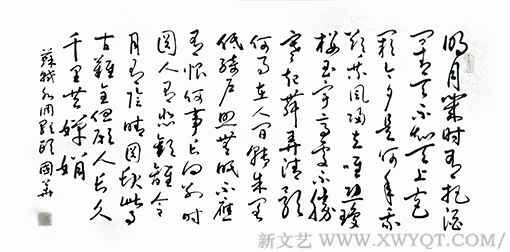 明月幾时有把酒
問青天不知天上宫
阙今夕是何年我
欲乘风归去唯恐瓊
楼玉宇高處不勝
寒起舞弄清影
何似在人间转朱阁
低绮户照無眠不應
有恨何事长向别时
圆人有悲歡離合
月有阴晴圆缺此事
古難全但愿人长久
千里共嬋娟
蘇軾水调歌頭國華
新文艺/WWW.XWYQT.COM/